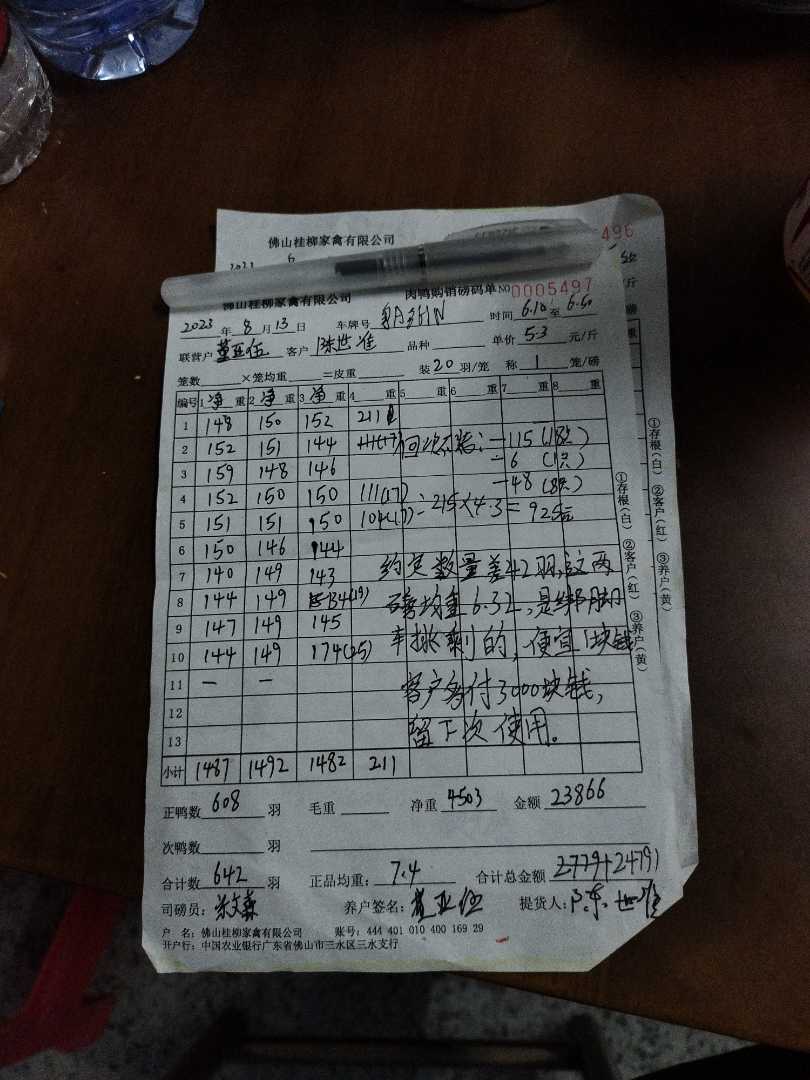 佛山桂柳家禽有限公司
496
佛山桂柳家禽有限公司 肉鸭购销磅码单 NO 0005497
2023年8月13日 车牌号 时间 6.10至6.50
联营户 董亚伍 客户 陈世准 品种 单价 5.3 元/斤
笼数 ×笼均重 =皮重 装20羽/笼 称 1 笼/磅
编号 1净重 2净重 3净重 4 重 5 重 6 重 7 重 8 重
1 148 150 152 211
2 152 151 144 -115(18只)
3 159 148 146 -6 (1只)
4 152 150 150 111(17) -48 (8只)
5 151 151 150 104(17) =215×4.3=925元
6 150 146 144
7 140 149 143 约定数量差42羽,这两
8 144 149 134(19) 磅均重6.32,是绑脚
9 147 149 145 车挑剩的,便宜1块钱
10 144 149 174(25)
11 — — 客户多付3000块钱,
12
13 留下次使用。
小计 1487 1492 1482 211
正鸭数 608 羽 毛重 净重 4503 金额 23866
次鸭数 羽
合计数 642 羽 正品均重: 7.4 合计总金额 2779+24791
司磅员: 养户签名: 董亚伍 提货人: 陈世准
户 名: 佛山桂柳家禽有限公司 账号: 444 401 010 400 169 29
开户行: 中国农业银行广东省佛山市三水区三水支行
①存根(白) ②客户(红) ③养户(黄)
①存根(白) ②客户(红) ③养户(黄)